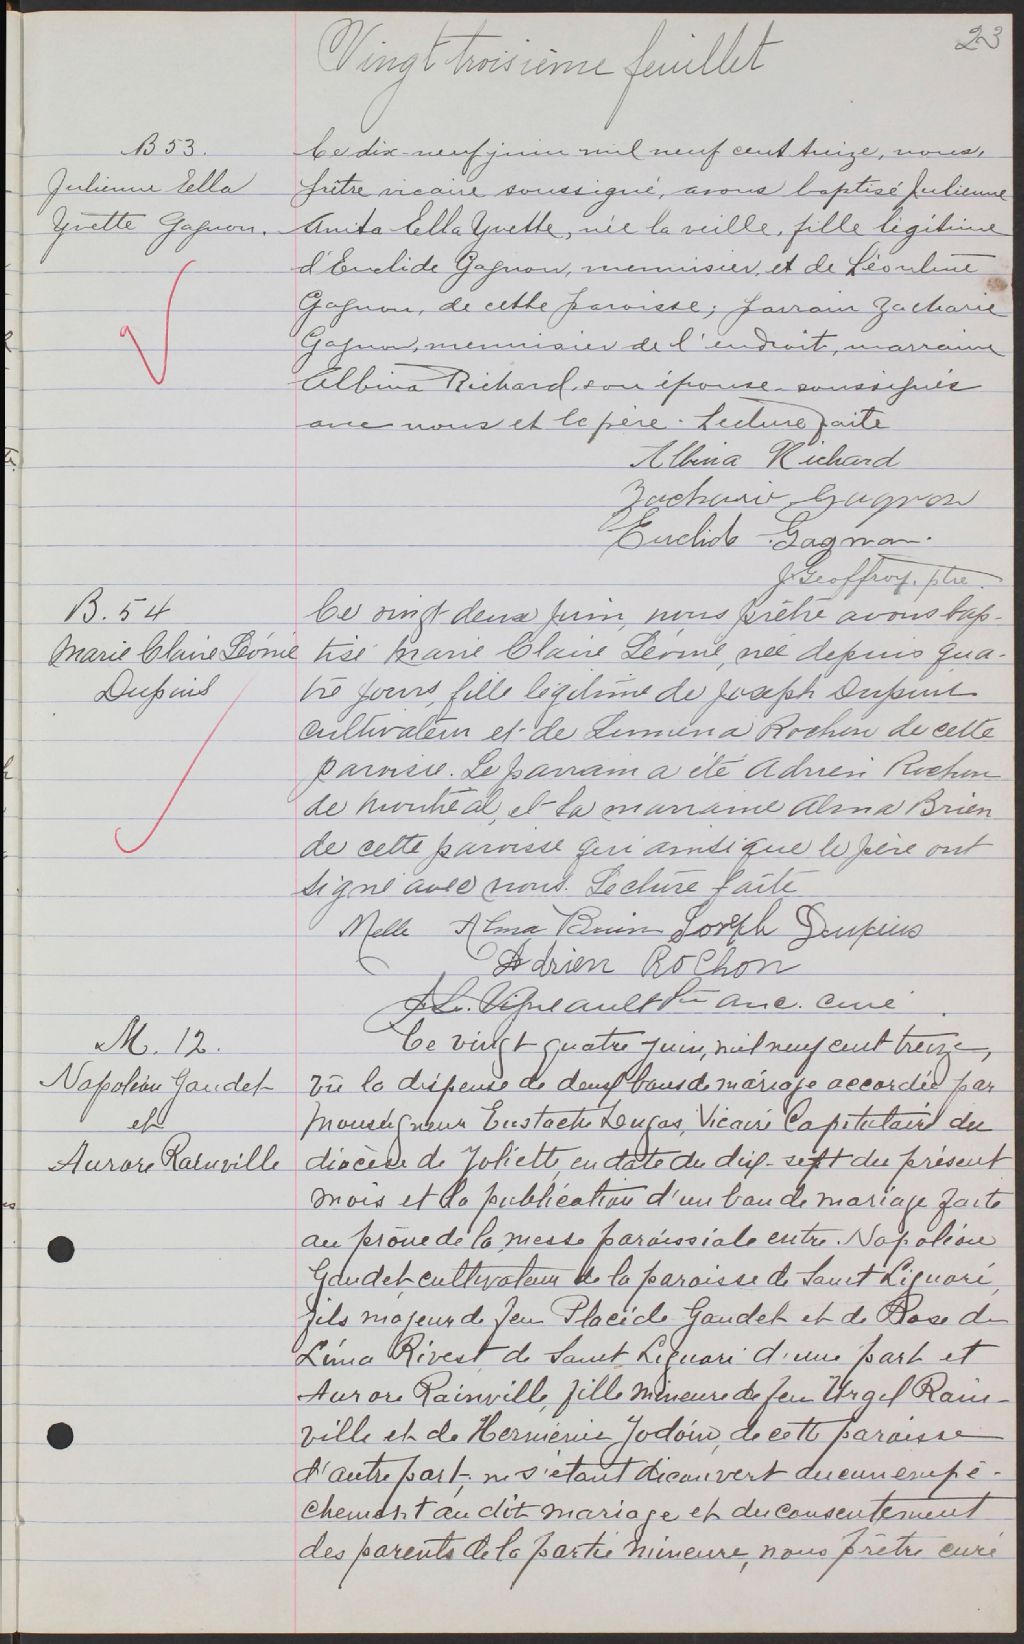 23
Vingt troisième feuillet
B 53.
Julienne Ella
Yvette Gagnon.
Ce dix-neuf juin mil neuf cent treize, nous,
prêtre vicaire soussigné, avons baptisé Julienne
Anita Ella Yvette, née la veille, fille légitime
d'Euclide Gagnon, menuisier, et de Léontine
Gagnon, de cette paroisse; parrain Zacharie
Gagnon, menuisier de l'endroit, marraine
Albina Richard, son épouse soussignés
avec nous et le père. Lecture faite
Albina Richard
Zacharie Gagnon
Euclide Gagnon.
J Geoffroy, ptre.
B. 54
Marie Claire Léonie
Dupuis
Ce vingt-deux juin, nous prêtre avons bap-
tisé Marie Claire Léonie, née depuis qua-
tre jours, fille légitime de Joseph Dupuis
cultivateur et de Rochon de cette
paroisse. Le parrain a été Adrien Rochon
de Montréal, et la marraine Alma Brien
de cette paroisse qui ainsi que le père ont
signé avec nous. Lecture faite
Melle Alma Brien Joseph Dupuis
Adrien Rochon
Vigneault Ptre anc. curé.
M. 12.
Napoléon Gaudet
et
Aurore Rainville
Ce vingt quatre juin, mil neuf cent treize,
vu la dispense de deux bans de mariage accordée par
Monseigneur Eustache Dugas, Vicaire Capitulaire du
diocèse de Joliette, en date du dix-sept du présent
mois et la publication d'un ban de mariage faite
au prône de la messe paroissiale entre Napoléon
Gaudet, cultivateur de la paroisse de Saint Liguori,
fils majeur de feu Placide Gaudet et de Rose de
Lima Rivest de Saint Liguori d'une part et
Aurore Rainville, fille mineure de feu Urgel Rain-
ville et de Herménie Jodoin, de cette paroisse
d'autre part, ne s'étant découvert aucun empê-
chement au dit mariage et du consentement
des parents de la partie mineure, nous prêtre curé